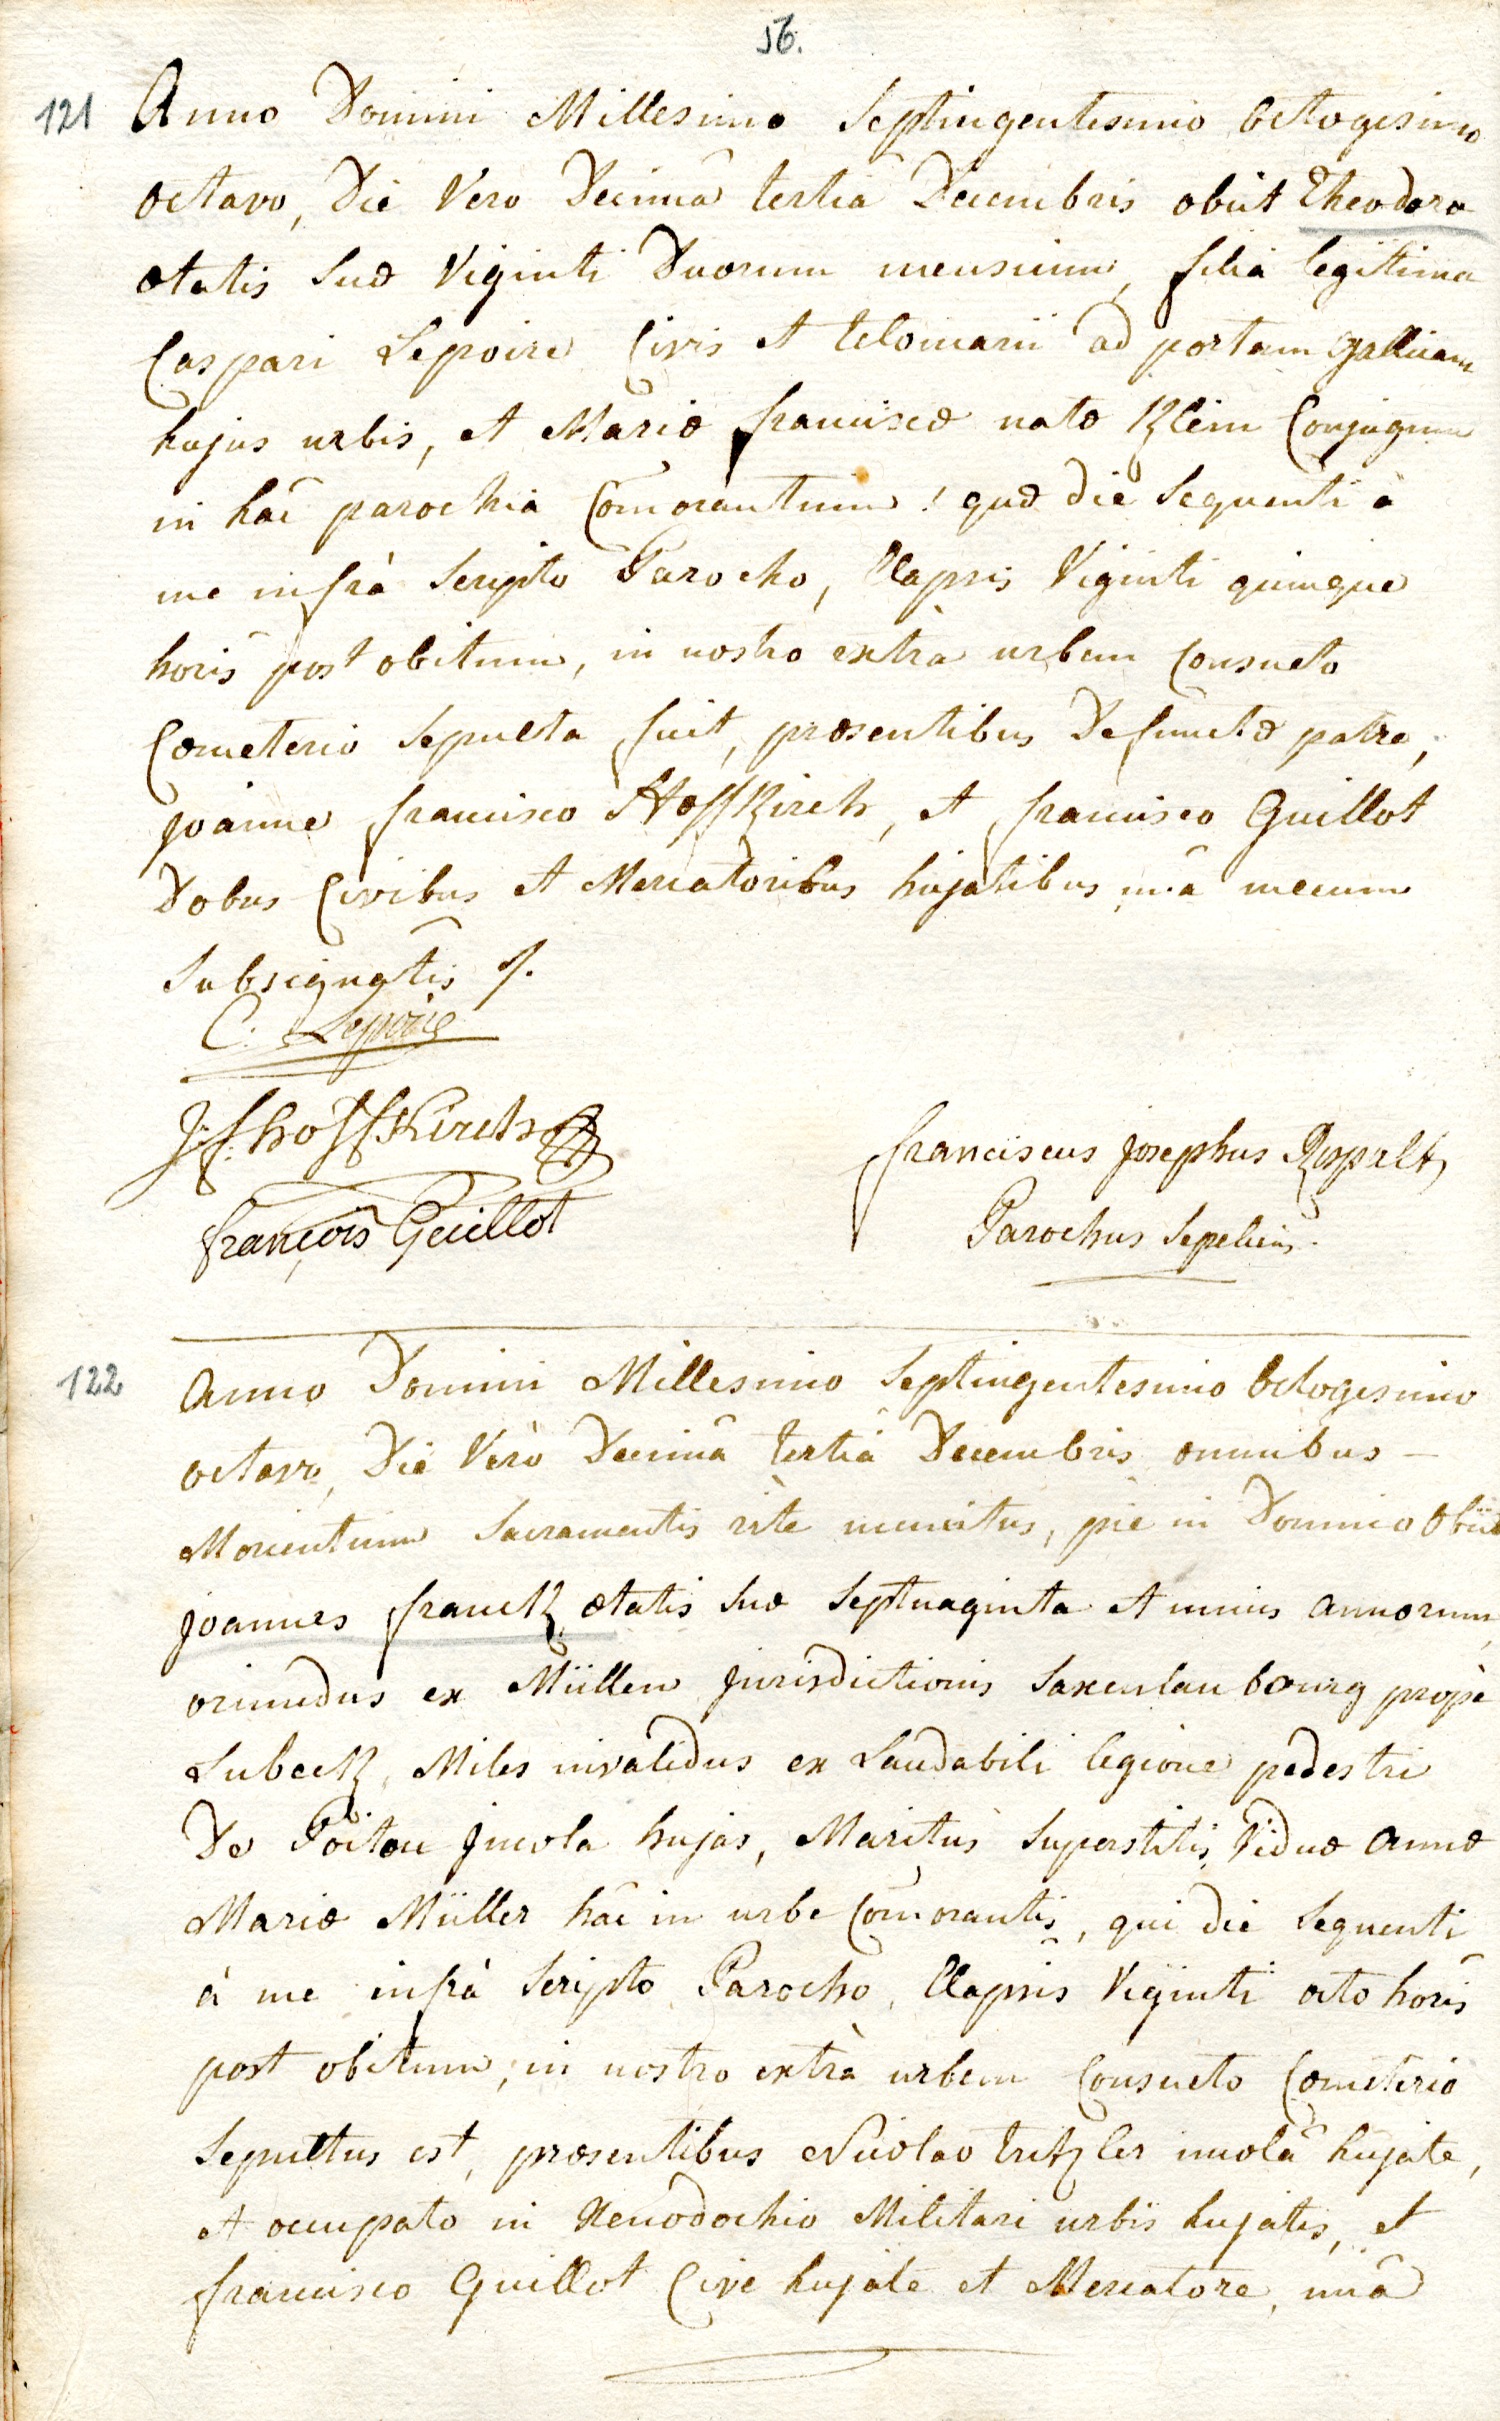 56.
121 Anno Domini Millesimo Septingentesimo Octogesimo
octavo, Die Vero Decimâ tertiâ Decembris obiit Theodora
ætatis suæ Viginti Duorum mensium, filia legitima
Caspari Lepoire Civis et teloniarii ad portam gallicam
hujus urbis, et Mariæ franciscæ natæ Klein Conjugum
in hac̃ parochia Com̃orantium! quæ die Sequenti à
me infrà Scripto Parocho, Elapsis Viginti quinque
horis post obitum, in nostro extrà urbem Consueto
Cœmeterio Sepulta fuit, præsentibus Defunctæ patre,
joanne francisco Hoffkirch, et francisco Guillot
Dobus Civibus et Mercatoribus hujatibus unâ mecum
Subsignatis /.
C. Lepoire
J: f: hoffkirch
françois Guillot
franciscus josephus
Parochus Sepeliens.
122 Anno Domini Millesimo Septingentesimo Octogesimo
octavo, Die Verò Decimâ tertiâ Decembris omnibus —
Morientium Sacramentis ritè munitus, piè in Domino Obiit
joannes franck ætatis suæ Septuaginta et unius annorum,
oriundus ex Müllen jurisdictionis Saxenlaubourg propè
Lubeck, Miles invalidus ex Laudabili legione pedestri
De Poitou jncola hujas, Maritus Superstitis Viduæ annæ
Mariæ Müller hac̃ in urbe Com̃orantis, qui die Sequenti
à me infrà Scripto Parocho, Elapsis Viginti octo horis
post obitum, in nostro extrà urbem Consueto Cœmeterio
Sepultus est, præsentibus Nicolao tritzler incolâ hujate,
et occupato in Xenodochio Militari urbis hujatis, et
francisco Guillot Cive hujate et Mercatore, unâ